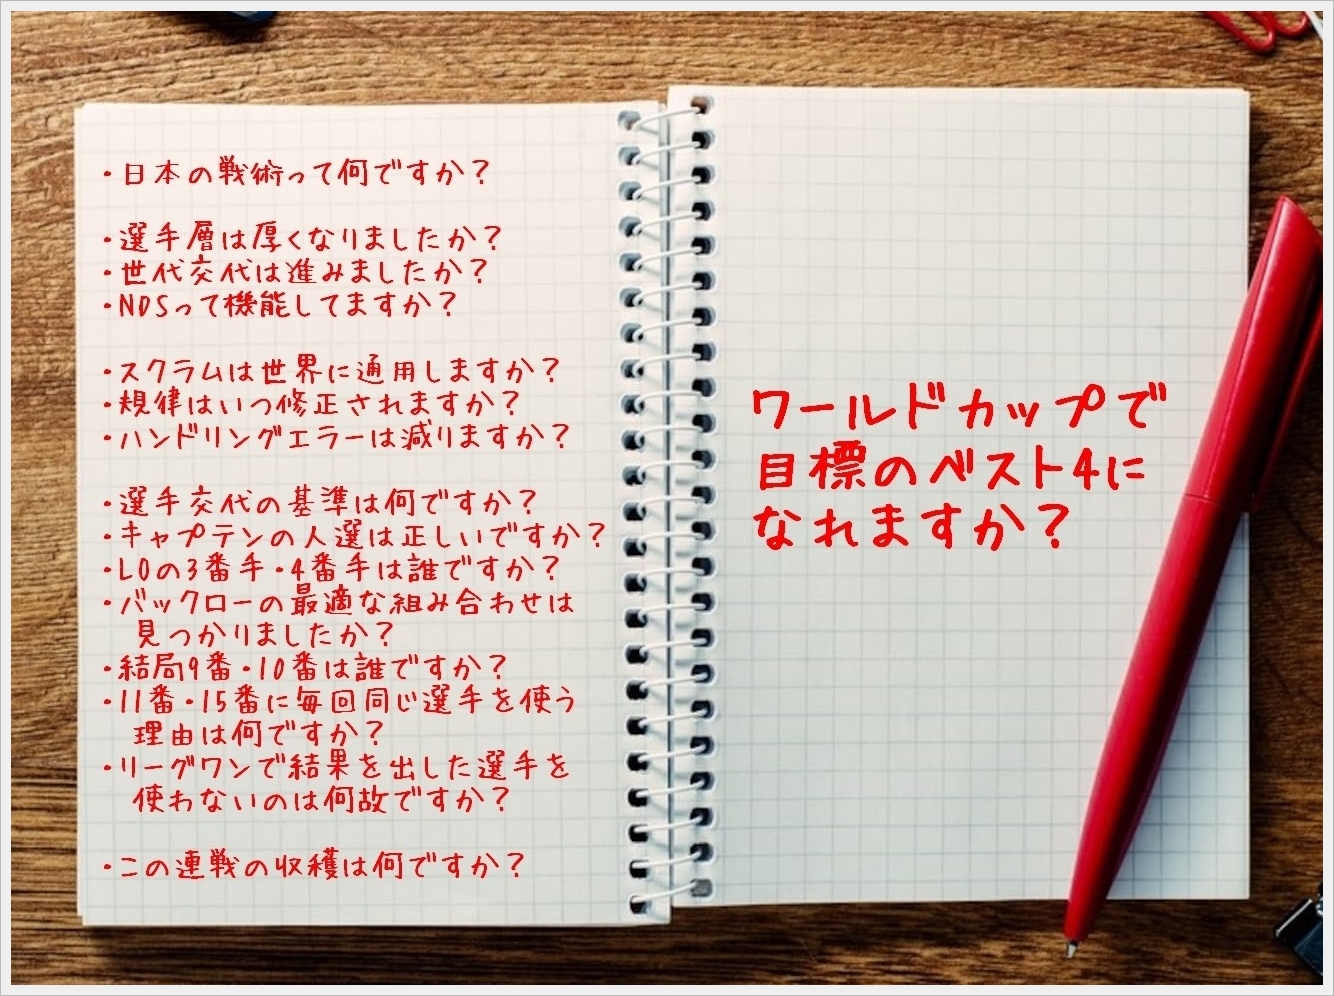 ・日本の戦術って何ですか？
・選手層は厚くなりましたか？
・世代交代は進みましたか？
・NDSって機能してますか？
・スクラムは世界に通用しますか？
・規律はいつ修正されますか？
・ハンドリングエラーは減りますか？
・選手交代の基準は何ですか？
・キャプテンの人選は正しいですか？
・LOの3番手・4番手は誰ですか？
・バックローの最適な組み合わせは
見つかりましたか？
・結局9番・10番は誰ですか？
・11番・15番に毎回同じ選手を使う
理由は何ですか？
・リーグワンで結果を出した選手を
使わないのは何故ですか？
・この連戦の収穫は何ですか？
ワールドカップで
目標のベスト4に
なれますか？